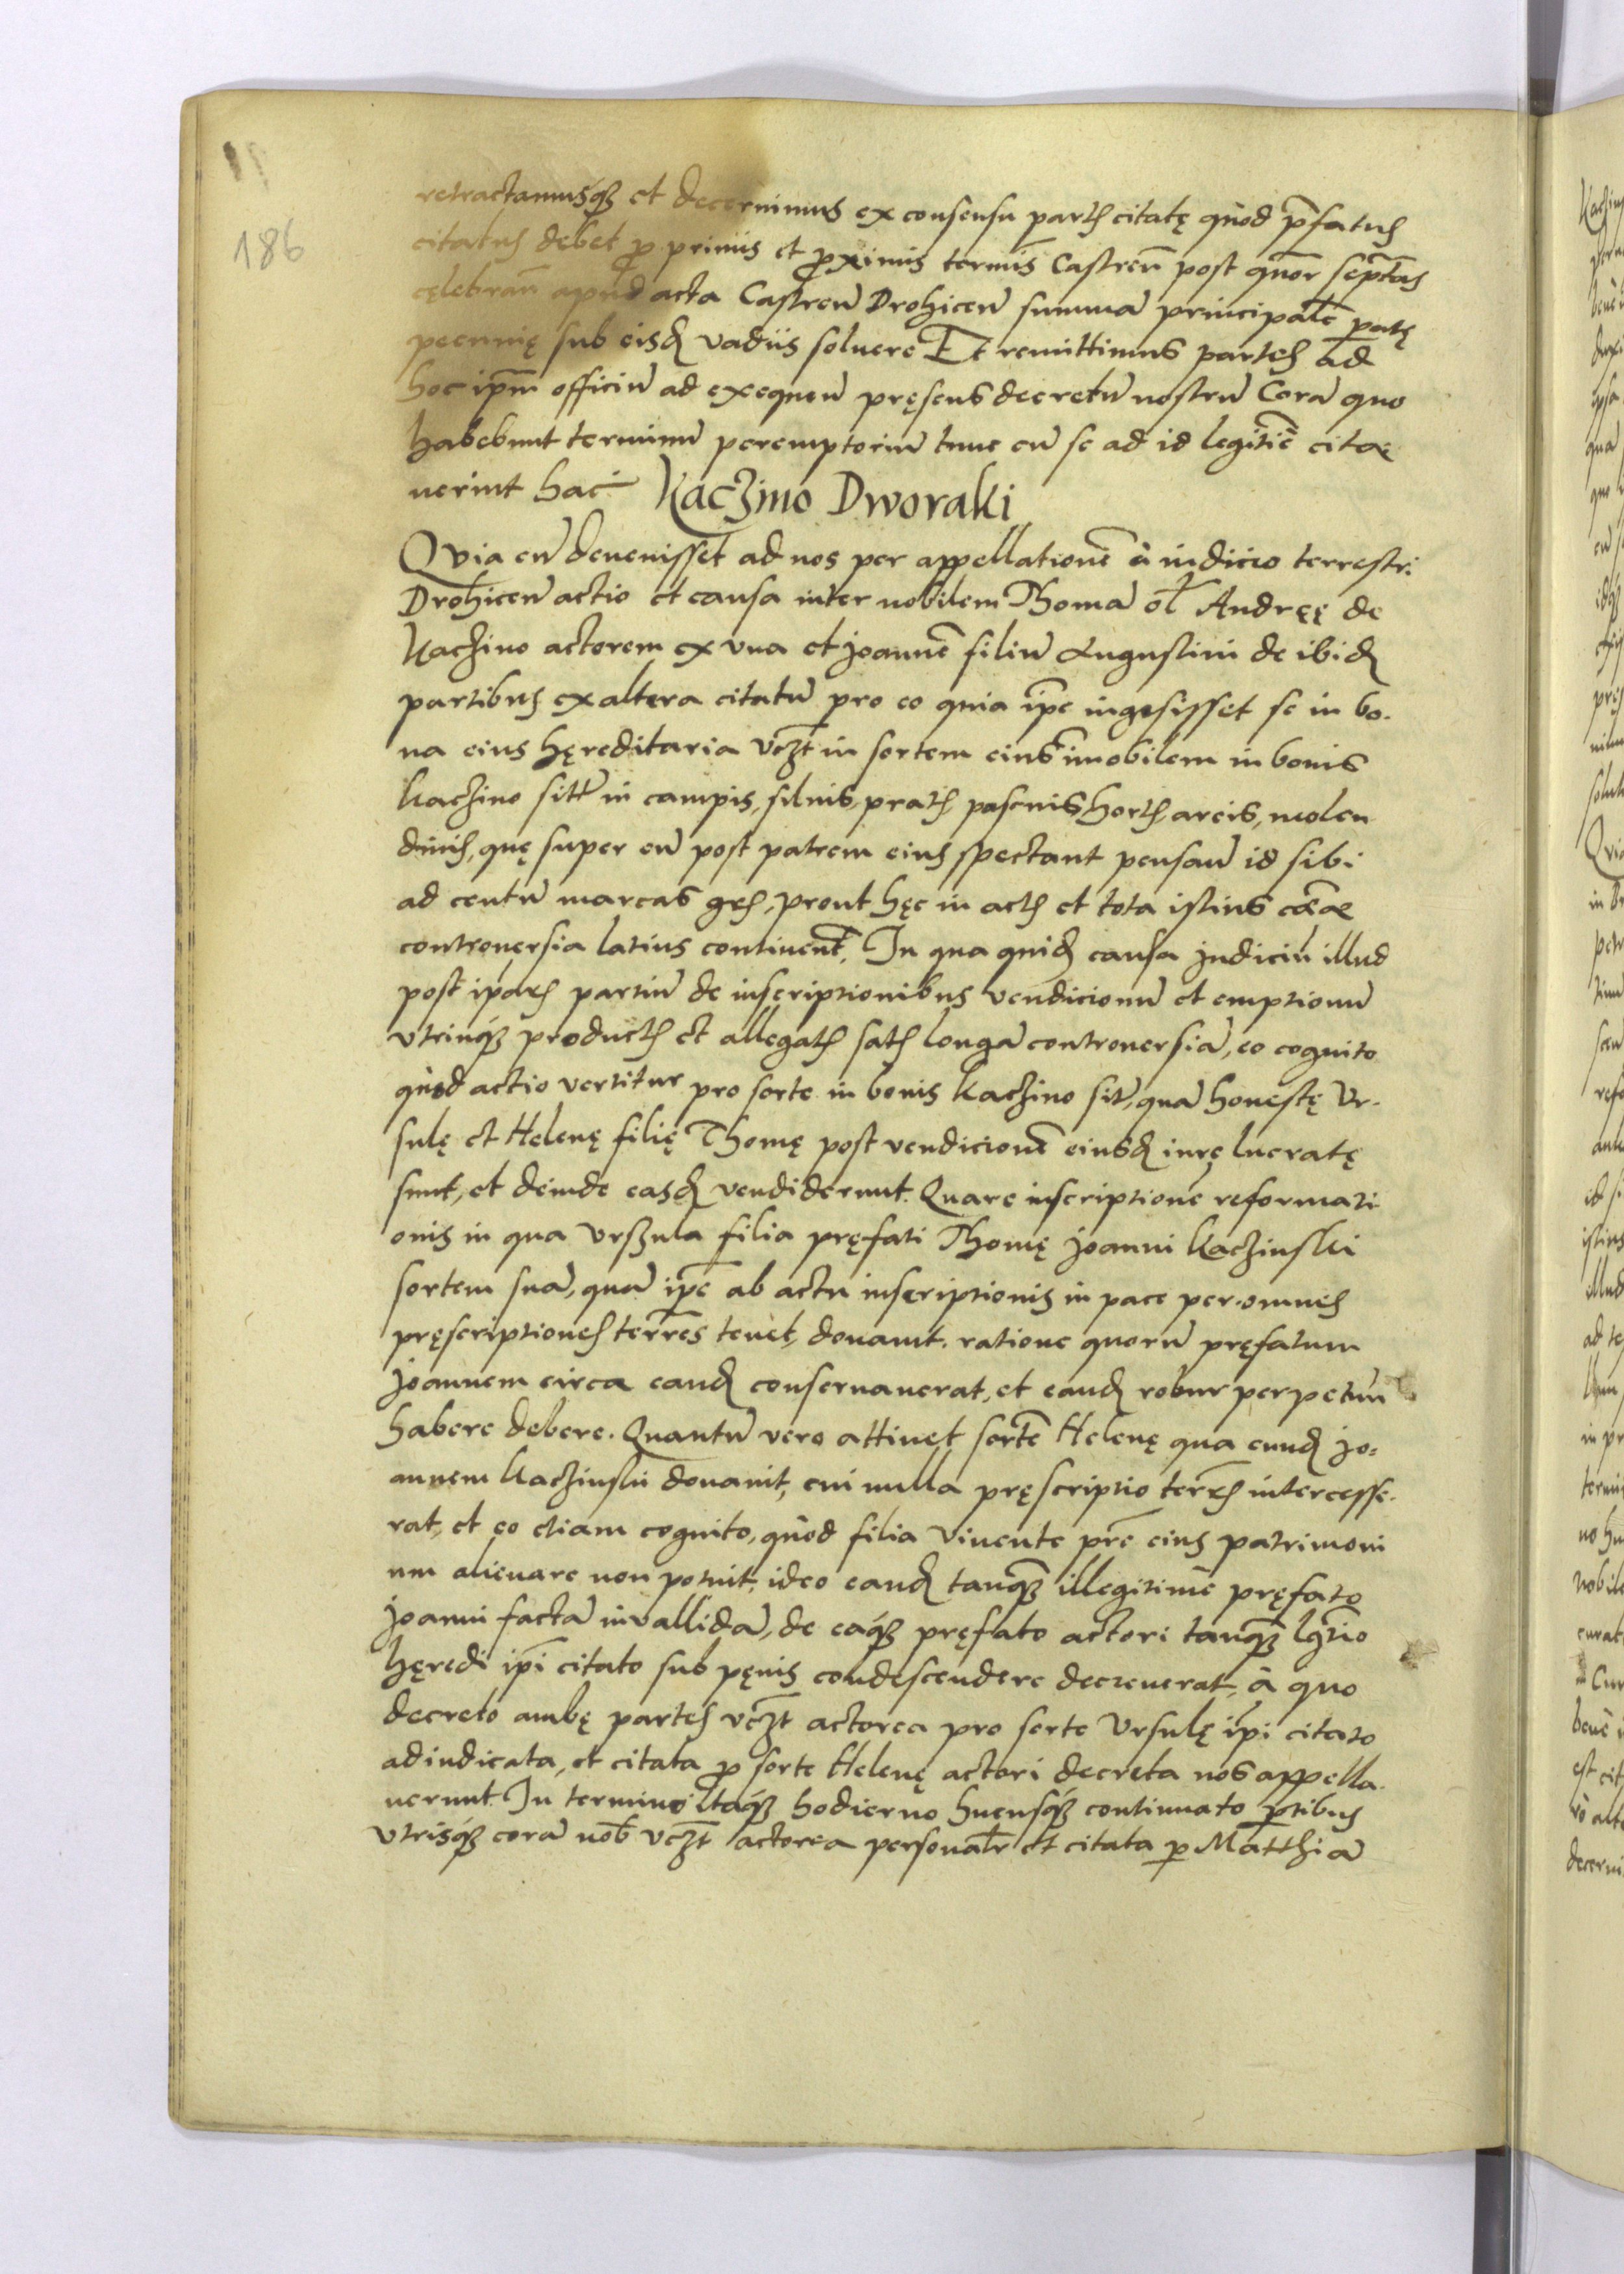 186
retractamusq₃ et decernimus ex consensu partis citatę quod p̄fatus
citatus debet p̱ primis et p̱ximis termīs Castreñ post quōr sep̄tās
cęlebrañ apud acta Castreñ Drohiceñ summā principalē patę
pecunię sub eisdē vadiis soluere Et remittimus partes ad
hoc ip̄m officiū ad exequeñ pręsens decretū nostrū Corā quo
habebunt terminū peremptoriū tunc cū se ad id legitīē cita
uerint hac Kaczino Dworaki
Qvia cū deuenisset ad nos per appellationē à iudicio terrestri
Drohiceñ actio et causa inter nobilem Thomā ol̄ Andręę de
Kaczino actorem ex vna et Joannē filiū Augustini de ibidē
partibus ex altera citatū pro eo quia ip̄e ingesisset se in bo-
na eius hęreditaria vcz̄t in sortem eius im̄obilem in bonis
Kaczino sitt̄ in campis, siluis, pratis pascuis hortis, areis, molen
dinis, quę super eū post patrem eius spectant pensañ id sibi
ad centū marcas grs, prout hęc in actis et tota istius cāe
controuersia latius continent̄. In qua quidē causa Judiciū illud
post ipāꝝ partiū de inscriptionibus vendicionū et emptionū
vtrinq₃ productis et allegatis satis longā controuersiā, eo cognito
quòd actio vertitur pro sorte in bonis Kaczino sit̄, quā honestę Vr-
sulę et Helenę filię Thomę post vendicionē eiusdē iurę lucratę
sunt, et deinde easdē vendiderunt. Quare inscriptionē reformati
onis in qua Vrszula filia pręfati Thomę Joanni Kaczinski
sortem suā, quā ip̄e ab actu inscriptionis in pace per omnes
pręscriptiones terr̄es tenet, donauit. ratione quorū pręfatum
Joannem circa eandē conseruauerat, et eandē robur perpetuū
habere debere. Quantū vero attinet sortē Helenę qua eundē Jo=
annem Kaczinski donauit, cui nulla pręscriptio terr̄is intercesse-
rat, et eo etiam cognito, quòd filia viuente pr̄e eius patrimoni
um alienare non potuit, ideo eandē tanq₃ illegitimè pręfato
Joanni factā inuallidā, de eaq₃ pręfato actori tanq₃ lḡtīo
hęredi ip̄i citato sub pęnis condescendere decreuerat, à quo
decreto ambę partes vcz̄t actorea pro sorte Vrsulę ip̄i citato
adiudicata, et citata p̱ sorte Helenę actori decreta nos appella-
uerunt. In termino itaq₃ hodierno hucusq₃ continuato p̱tibus
vtrisq₃ corā nob̄ vcz̄t actorea personalr̄ et citata p̱ Matthiā